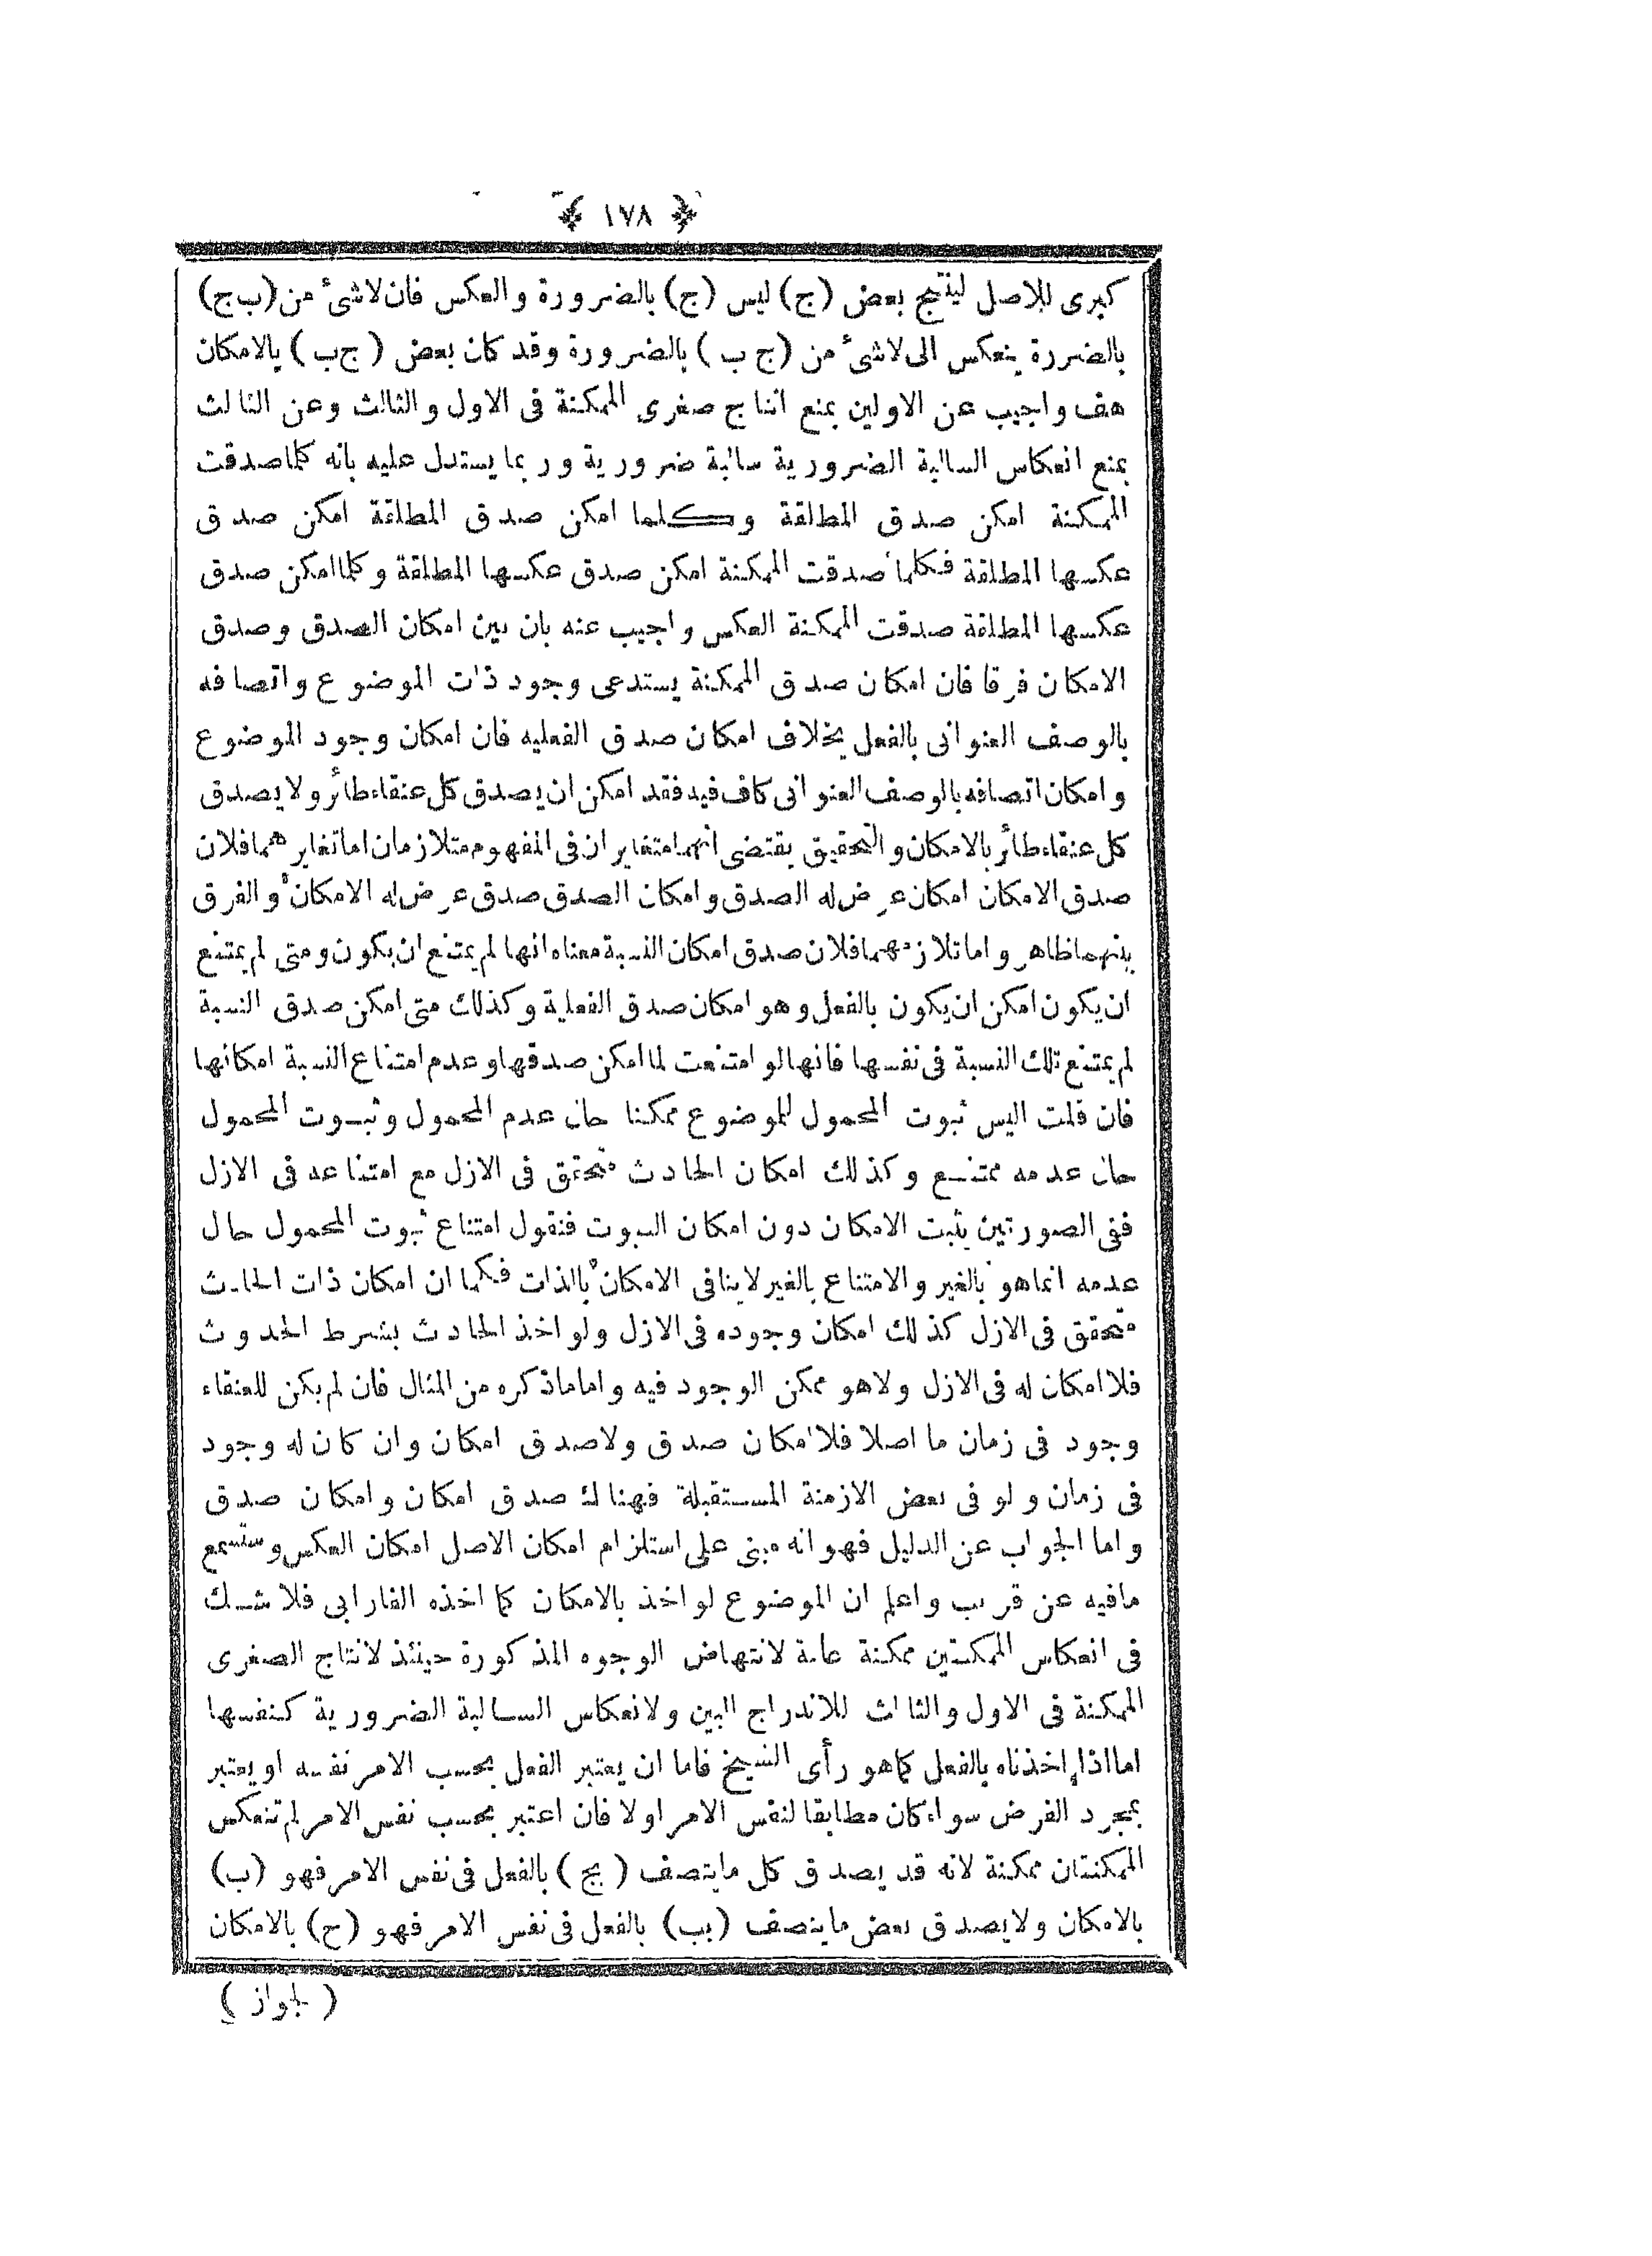 ١٧٨
كبرى للاصل لينتج بعض (ج) ليس (ج) بالضرورة والعكس فان لاشئ من (ب ج)
بالضررة ينعكس الى لاشئ من (ج ب) بالضرورة وقد كان بعض (ج ب) بالامكان
هف واجيب عن الاولين بمنع انتاج صغرى الممكنة فى الاول والثالث وعن الثالث
بمنع انعكاس السالبة الضرورية سالبة ضرورية وربما يستدل عليه بانه كلما صدقت
الممكنة امكن صدق المطلقة وكلما امكن صدق المطلقة امكن صدق
عكسها المطلقة فكلما صدقت الممكنة امكن صدق عكسها المطلقة وكلما امكن صدق
عكسها المطلقة صدقت الممكنة العكس واجيب عنه بان بين امكان الصدق وصدق
الامكان فرقا فان امكان صدق الممكنة يستدعى وجود ذات الموضوع واتصافه
بالوصف العنوانى بالفعل بخلاف امكان صدق الفعليه فان امكان وجود الموضوع
وامكان اتصافه بالوصف العنوانى كاف فيه فقد امكن ان يصدق كل عنقاء طائر ولا يصدق
كل عنقاء طائر بالامكان والتحقيق يقتضى انهما متغايران فى المفهوم متلازمان اما تغايرهما فلان
صدق الامكان امكان عرض له الصدق وامكان الصدق صدق عرض له الامكان والفرق
بينهما ظاهر واما تلازمهما فلان صدق امكان النسبة معناه انها لم يمتنع ان يكون ومتى لم يمتنع
ان يكون امكن ان يكون بالفعل وهو امكان صدق الفعلية وكذلك متى امكن صدق النسبة
لم يمتنع تلك النسبة فى نفسها فانها لو امتنعت لما امكن صدقها وعدم امتناع النسبة امكانها
فان قلت اليس ثبوت المحمول للموضوع ممكنا حال عدم المحمول وثبوت المحمول
حال عدمه ممتنع وكذلك امكان الحادث متحقق فى الازل مع امتناعه فى الازل
ففى الصورتين يثبت الامكان دون امكان الثبوت فنقول امتناع ثبوت المحمول حال
عدمه انما هو بالغير والامتناع بالغير لا ينافى الامكان بالذات فكما ان امكان ذات الحادث
متحقق فى الازل كذلك امكان وجوده فى الازل ولو اخذ الحادث بشرط الحدوث
فلا امكان له فى الازل ولا هو ممكن الوجود فيه واما ماذكره من المثال فان لم يكن للعنقاء
وجود فى زمان ما اصلا فلا امكان صدق ولا صدق امكان وان كان له وجود
فى زمان ولو فى بعض الازمنة المستقبلة فهناك صدق امكان وامكان صدق
واما الجواب عن الدليل فهو انه مبنى على استلزام امكان الاصل امكان العكس وستسمع
مافيه عن قريب واعلم ان الموضوع لو اخذ بالامكان كما اخذه الفارابى فلا شك
فى انعكاس الممكنتين ممكنة عامة لانتهاض الوجوه المذكورة حينئذ لانتاج الصغرى
الممكنة فى الاول والثالث للاندراج البين ولانعكاس السالبة الضرورية كنفسها
اما اذا اخذناه بالفعل كما هو رأى الشيخ فاما ان يعتبر الفعل بحسب الامر نفسه او يعتبر
بمجرد الفرض سواء كان مطابقا لنفس الامر او لا فان اعتبر بحسب نفس الامر لم تنعكس
الممكنتان ممكنة لانه قد يصدق كل مايتصف (بج) بالفعل فى نفس الامر فهو (ب)
بالامكان ولا يصدق بعض مايتصف (بب) بالفعل فى نفس الامر فهو (ح) بالامكان
(لجواز)